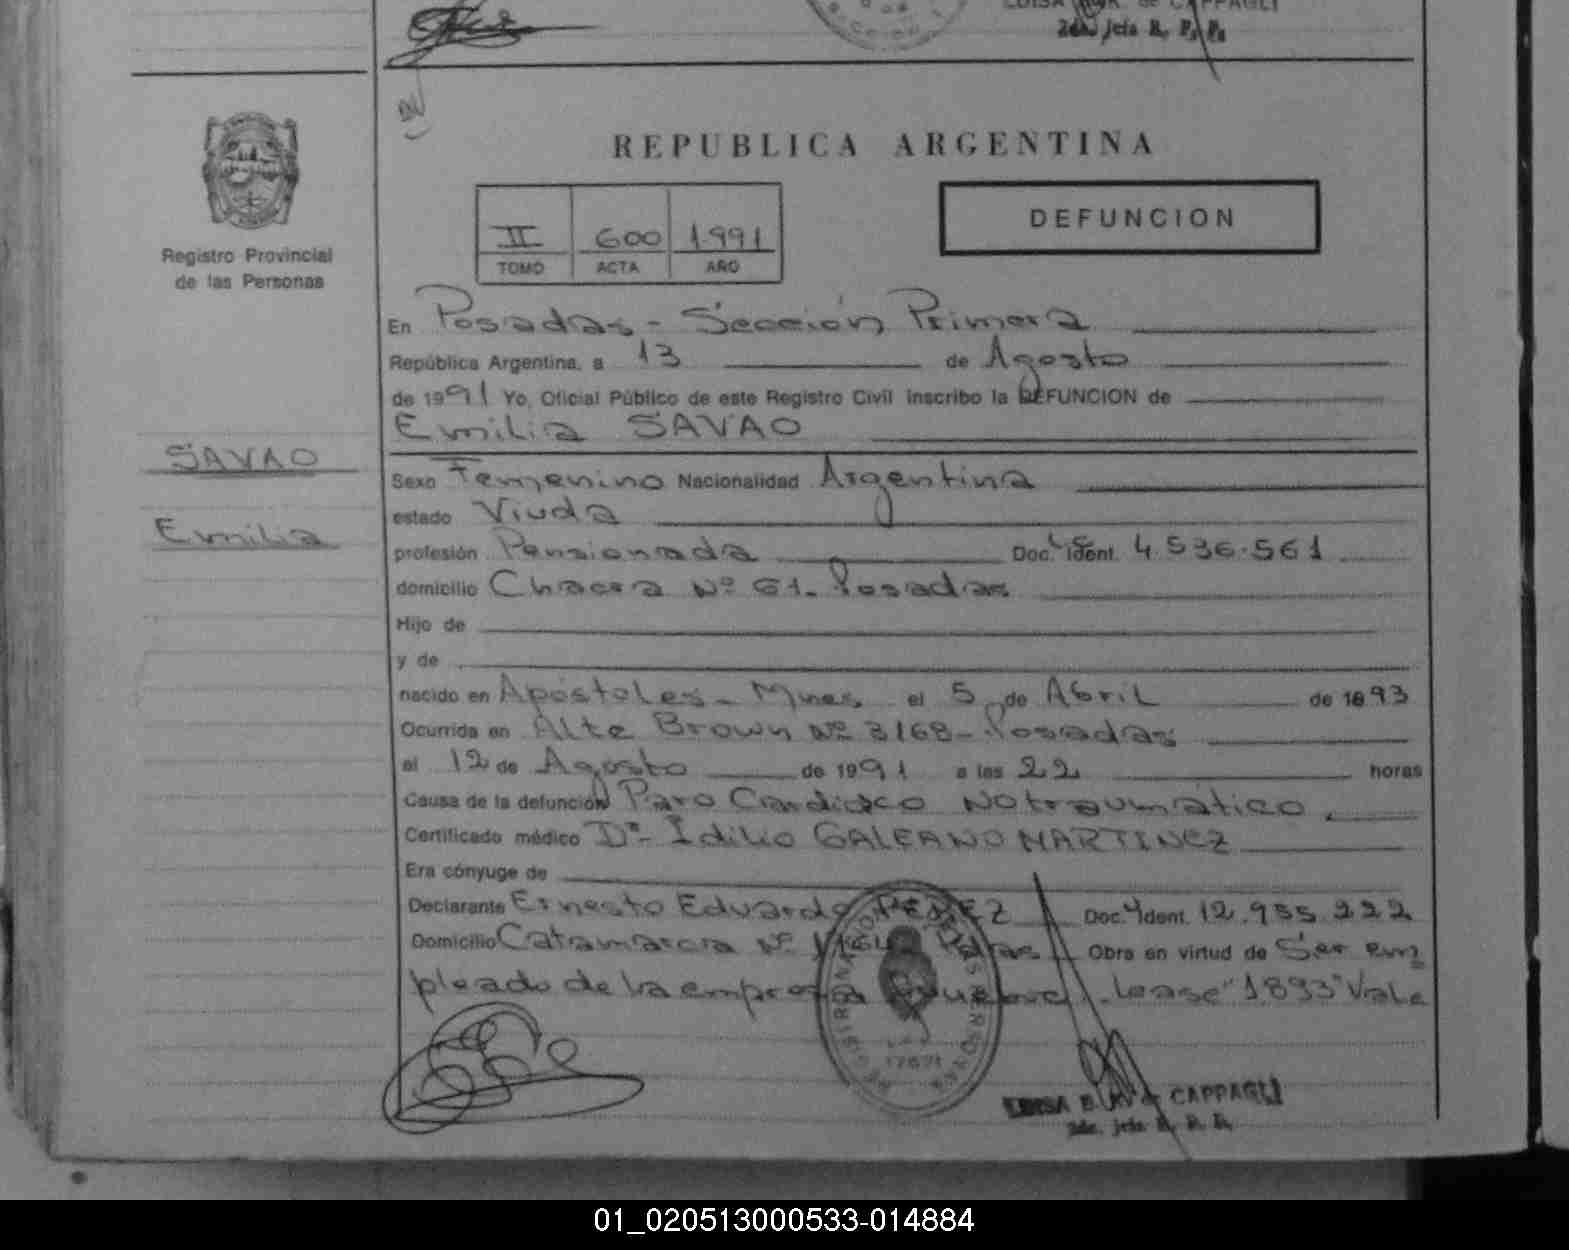 LUISA de CAPPAGLI
2da. Jefa R. P. P.
REPUBLICA ARGENTINA
II 600 1.991
TOMO ACTA AÑO
DEFUNCION
Registro Provincial
de las Personas
SAVAO
Emilia
En Posadas - Sección Primera
República Argentina, a 13 de Agosto
de 1991 Yo, Oficial Público de este Registro Civil inscribo la DEFUNCION de
Emilia SAVAO
Sexo Femenino Nacionalidad Argentina
estado Viuda
profesión Pensionada Doc. ident. 4.536.561
domicilio Chacra Nº 61. Posadas
Hijo de
y de
nacido en Apóstoles - Mnes el 5 de Abril de 1893
Ocurrida en Alte Brown Nº 3168 - Posadas
el 12 de Agosto de 1991 a las 22 horas
Causa de la defunción Paro Cardiaco No traumático
Certificado médico Dr. Idilio GALEANO MARTINEZ
Era cónyuge de
Declarante Ernesto Eduardo Doc. Ident. 12.955.222
Domicilio Catamarca Nº Pdas Obra en virtud de Ser em
pleado de la empresa Lease "1.893" Vale
LUISA B. de CAPPAGLI
2da. Jefa R. P. P.
01_020513000533-014884